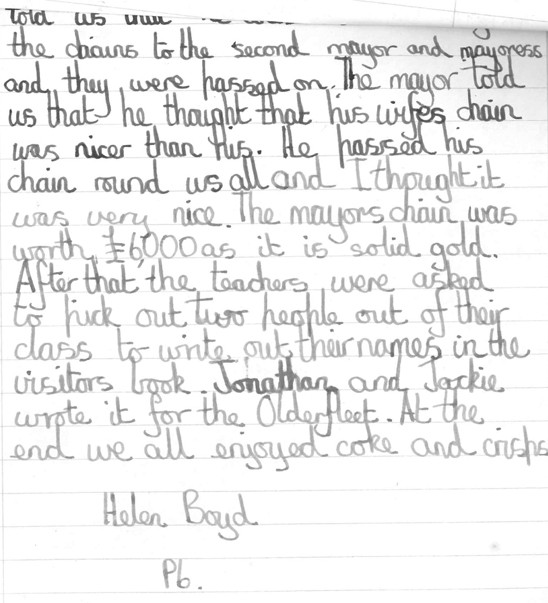 told us
the chains to the second mayor and mayoress
and they were passed on. The mayor told
us that he thought that his wifes chain
was nicer than his. He passed his
chain round us all and I thought it
was very nice. The mayors chain was
worth £6,000 as it is solid gold.
After that the teachers were asked
to pick out two people out of their
class to write out their names in the
visitors book. Jonathan and Jackie
wrote it for the Olderfleet. At the
end we all enjoyed coke and crisps
Helen Boyd
P6.